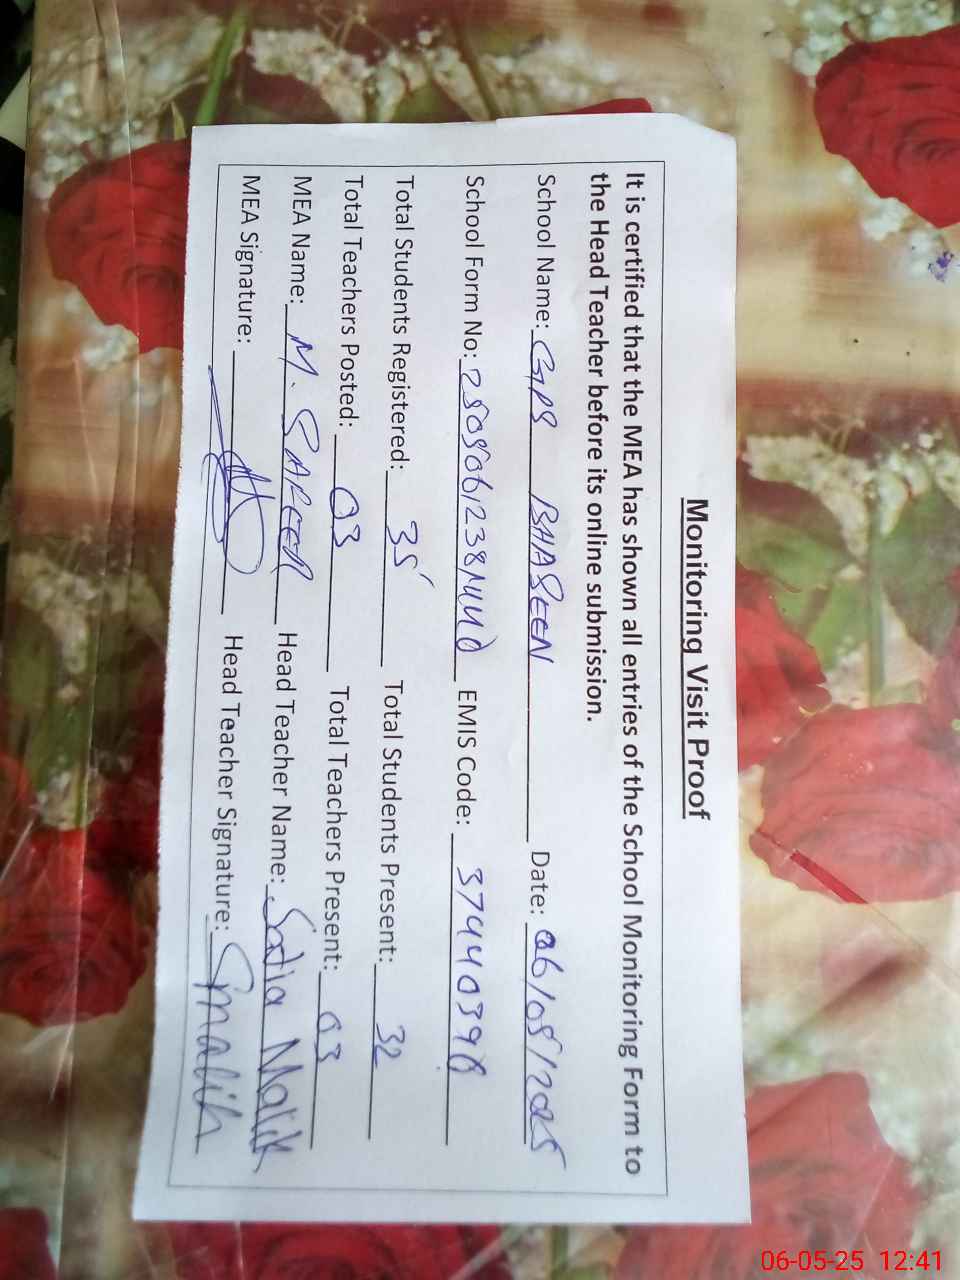 Monitoring Visit Proof
It is certified that the MEA has shown all entries of the School Monitoring Form to
the Head Teacher before its online submission.
School Name: GPS BHASEEN Date: 06/05/2025
School Form No: EMIS Code:
Total Students Registered: 35 Total Students Present: 32
Total Teachers Posted: 03 Total Teachers Present: 03
MEA Name: M. Head Teacher Name: Sadia Malik
MEA Signature: Head Teacher Signature: Smalik
06-05-25 12:41